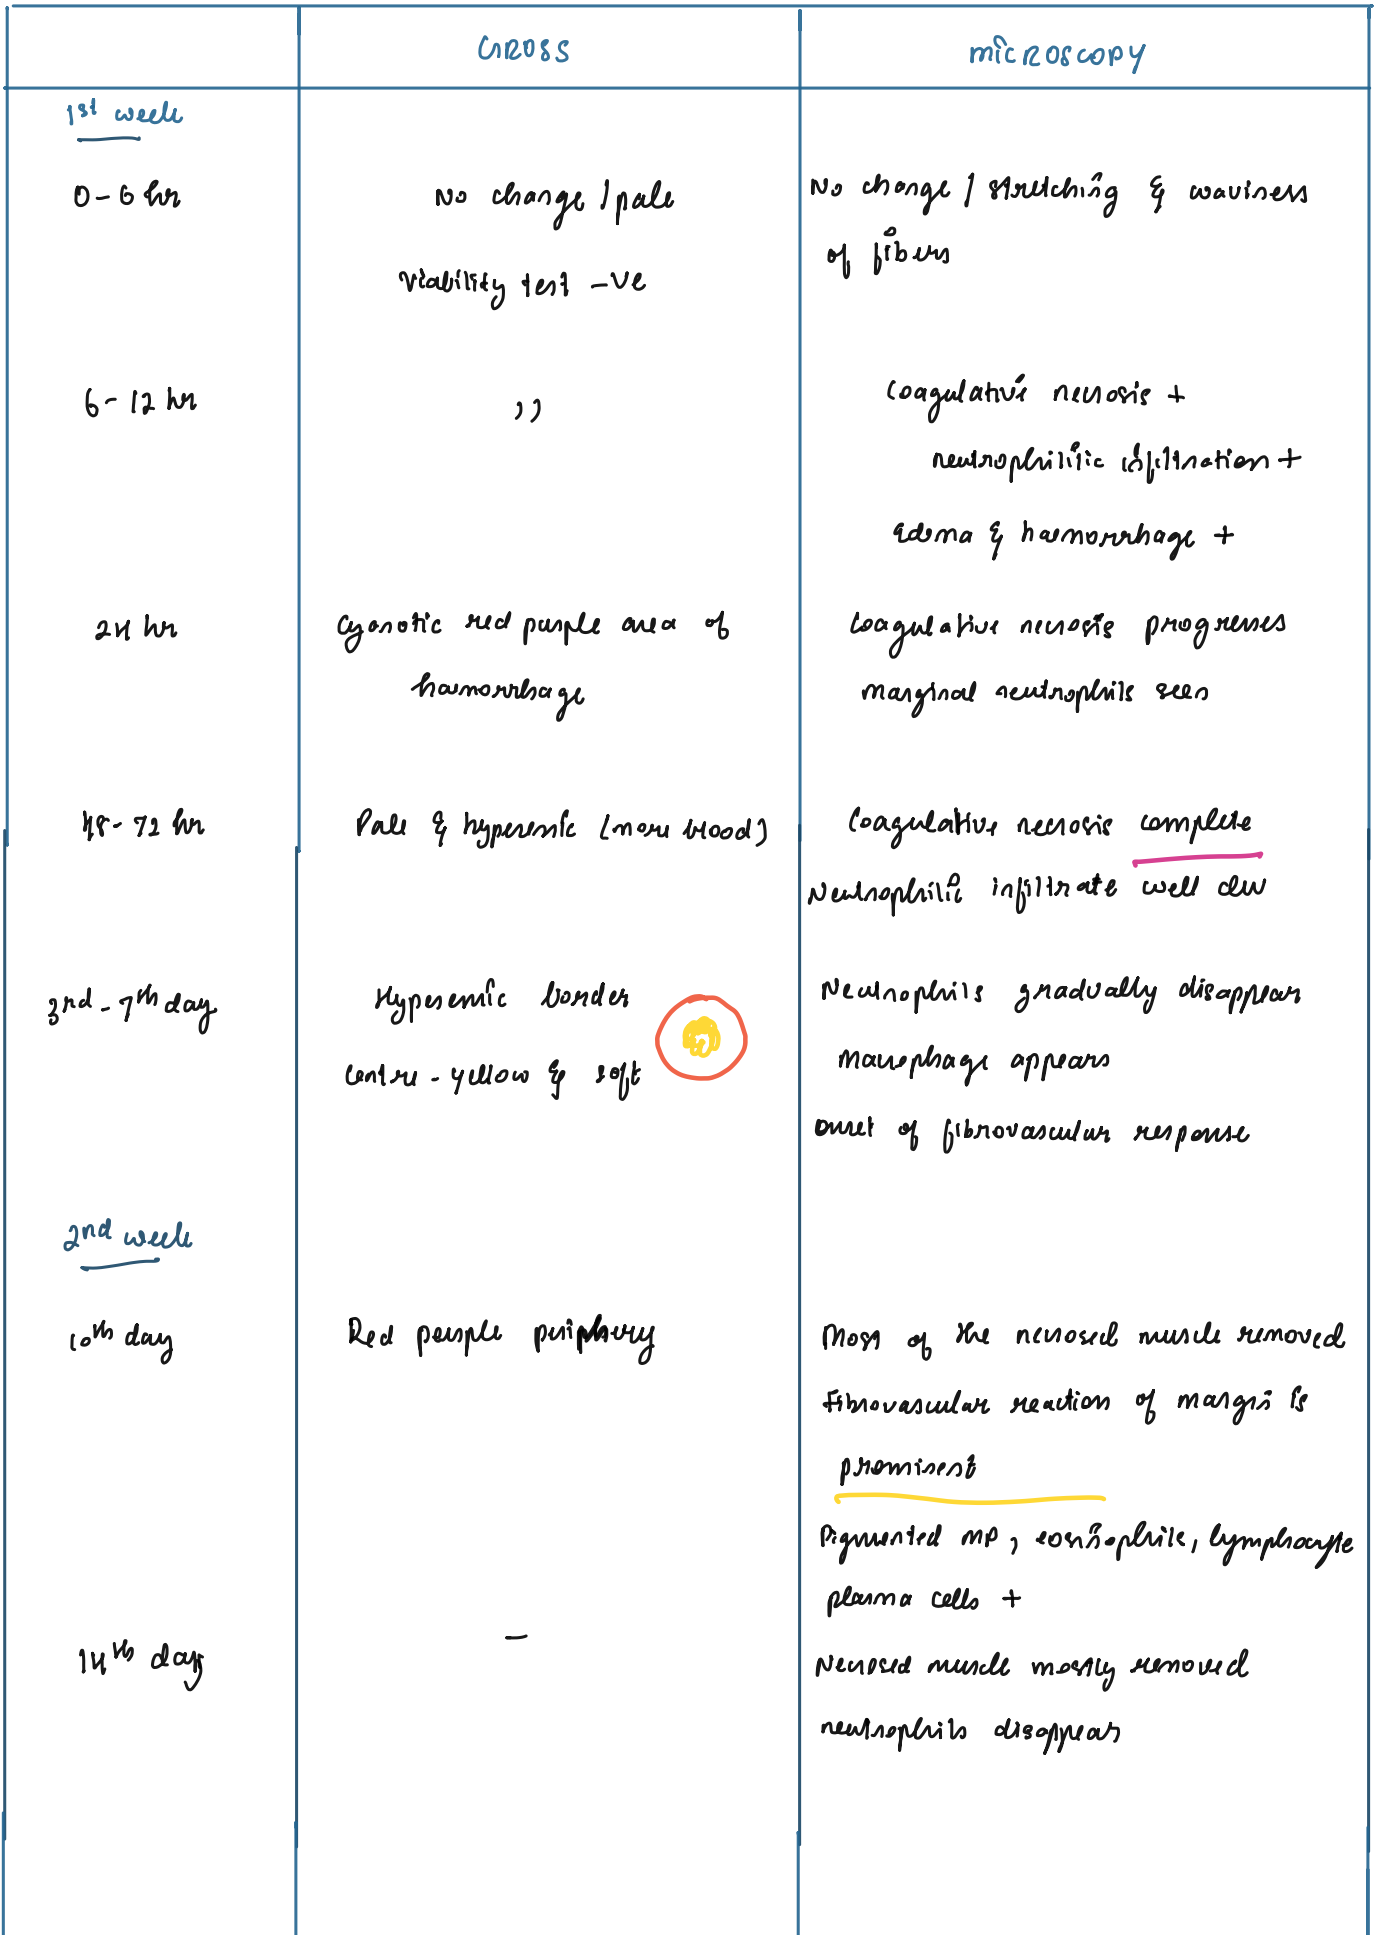 GROSS
microscopy
1st week
0-6 hr
No change / pale
No change / stretching & waviness
of fibers
viability test -ve
6-12 hr
,,
Coagulative necrosis +
neutrophilic infiltration +
Edema & haemorrhage +
24 hr
Cyanotic red purple area of
haemorrhage
Coagulative necrosis progresses
marginal neutrophils seen
48-72 hr
Pale & hyperemic (more blood)
Coagulative necrosis complete
Neutrophilic infiltrate well dev
3rd-7th day
Hyperemic border
Centre - yellow & soft
Neutrophils gradually disappear
macrophage appears
onset of fibrovascular response
2nd week
10th day
Red purple periphery
Most of the necrosed muscle removed
Fibrovascular reaction of margin is
prominent
Pigmented MP, eosinophils, lymphocyte
plasma cells +
14th day
-
Necrosed muscle mostly removed
neutrophils disappear